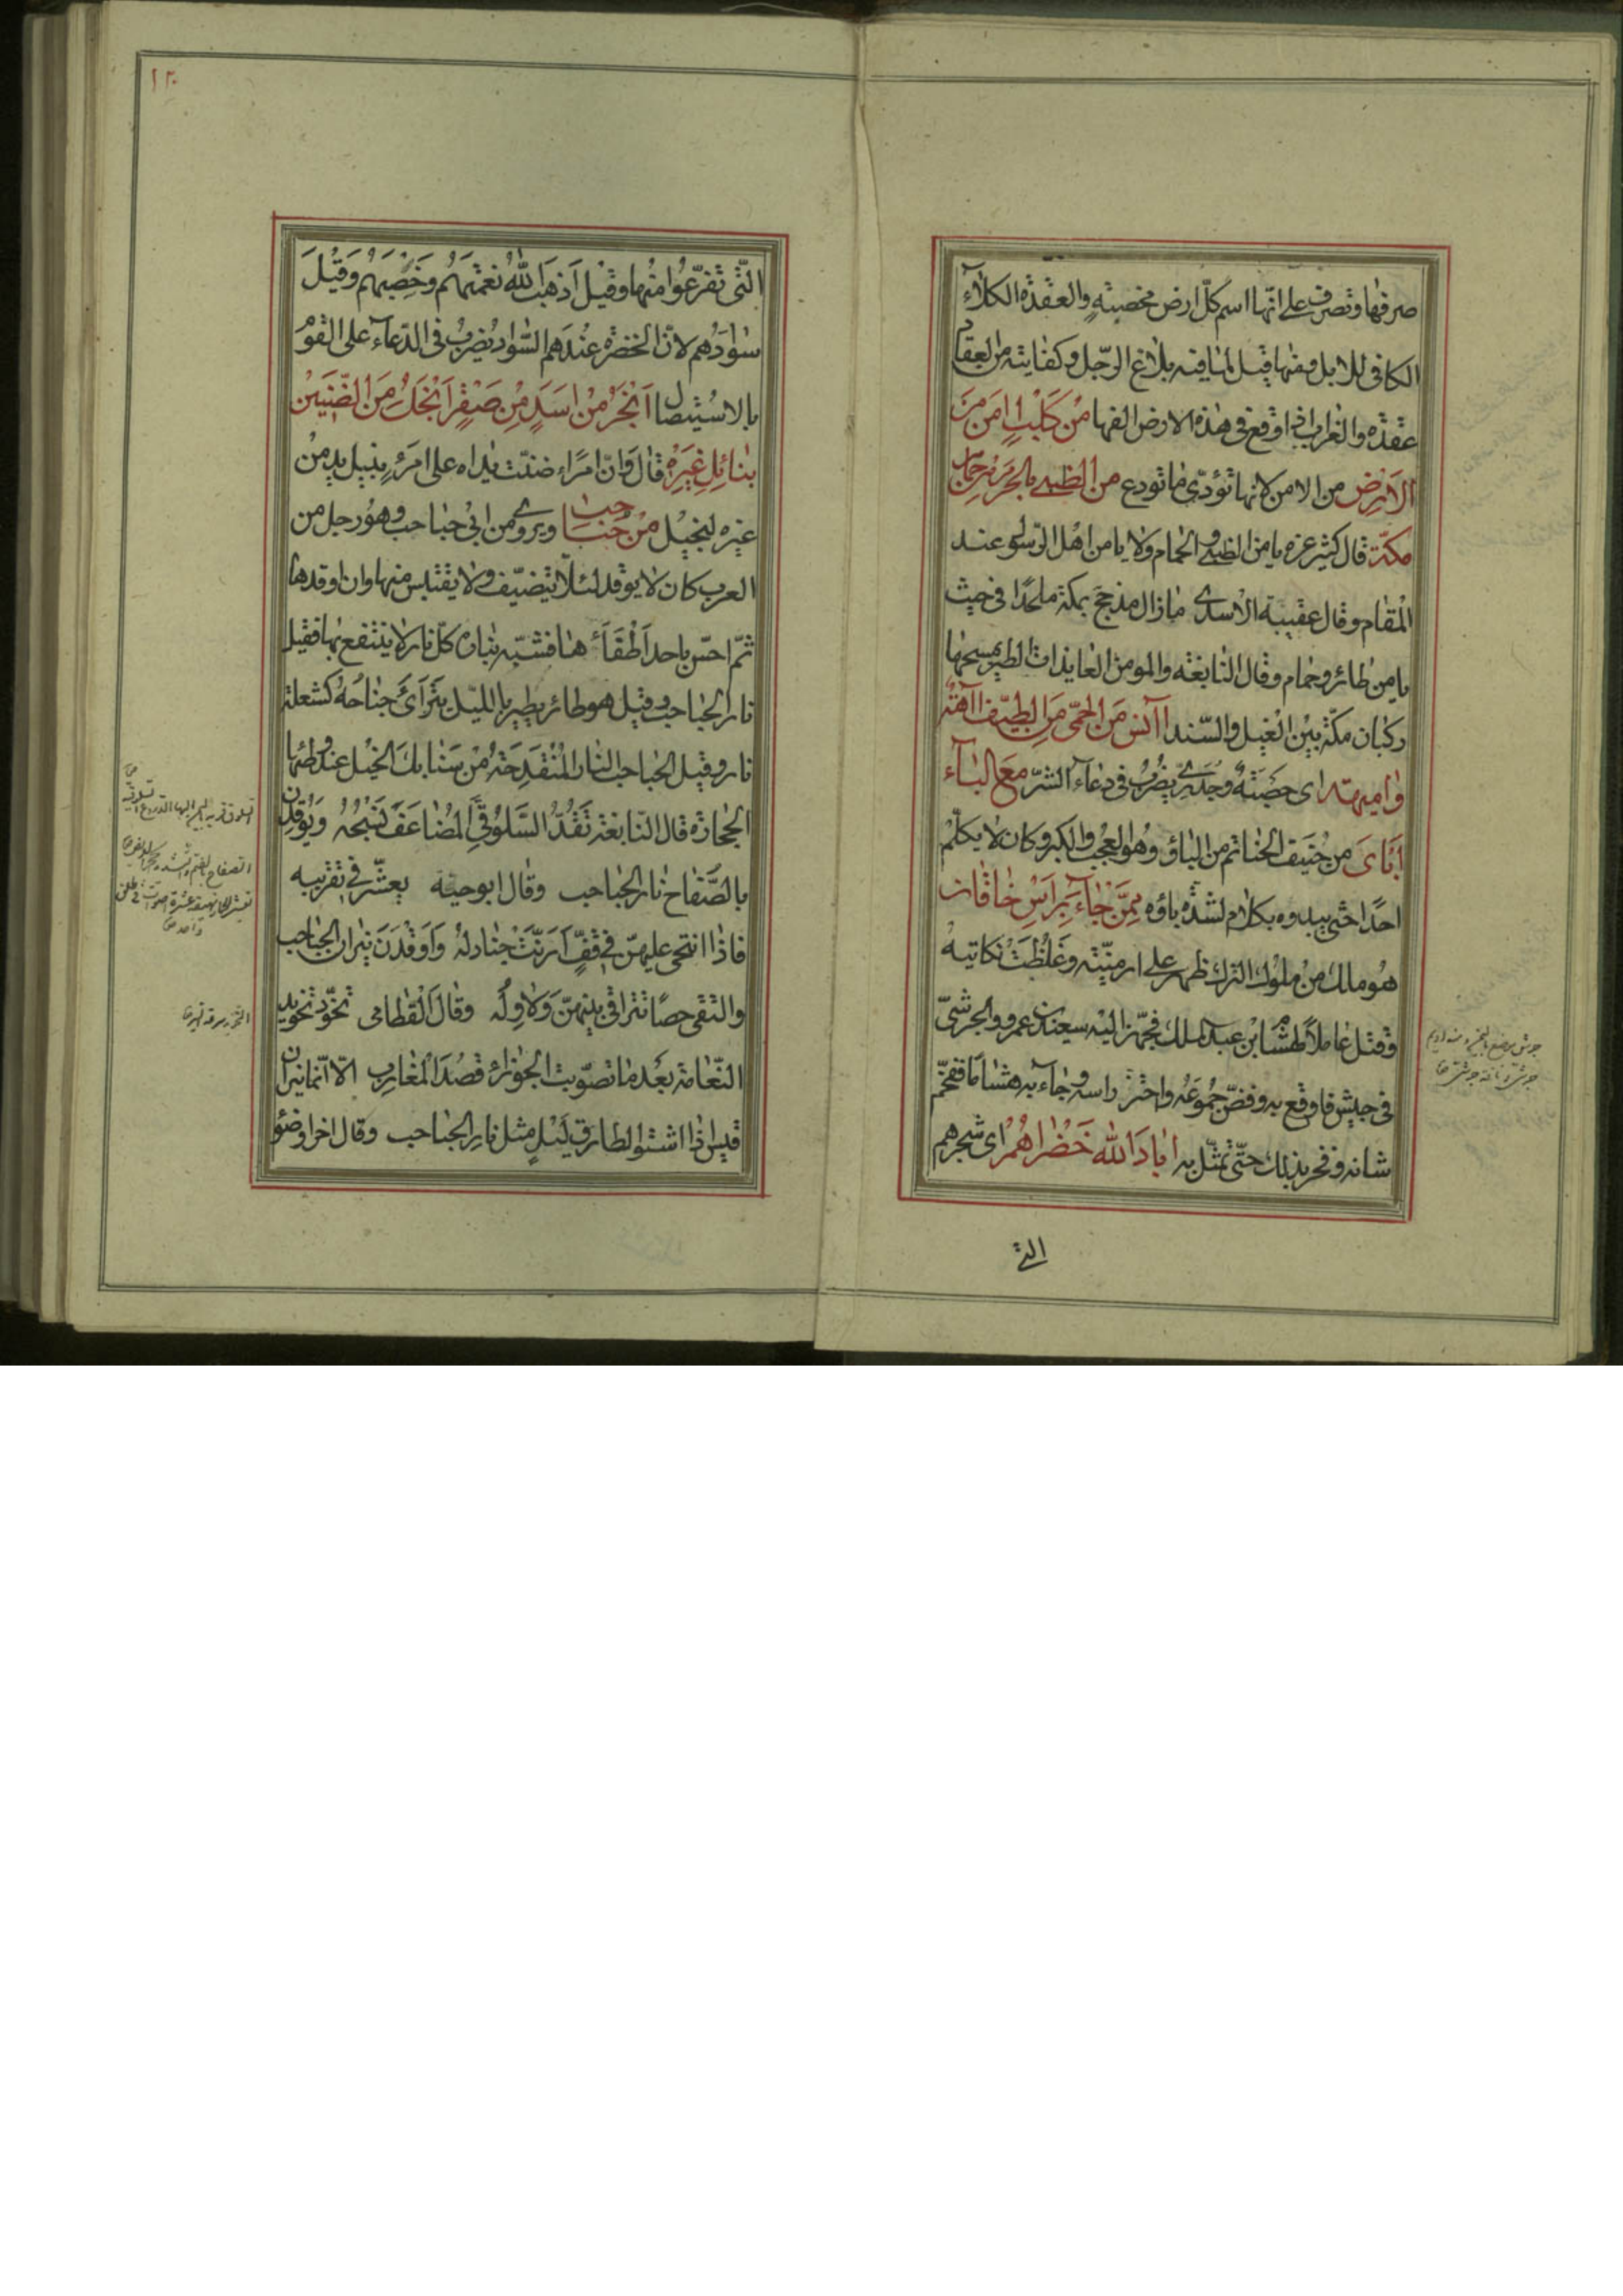 صرفها وتصرف على انّها اسم كلّ ارض مخصبة والعقدة الكلاء
الكافى للابل وقيها قيل لما فيه بلاغ الرّجل وكفايته من العقار
عقدة والغراب اذا وقع فى هذه الارض الفها من كلب امن من
الارض من الامن لانها تؤدّى ما تودع من الظبى بالحرم من حمام
مكّة قال كثير عزه يا من الظبى والحمام ولا يامن اهل الرّسول عند
المقام وقال عقيبة الاسدى مازال مذحج بمكة ملحدًا فى حيث
يا من طائر وحمام وقال النابغة والمومن العايذات الطير يمسحها
ركبان مكّة بين الغيل والسّند آانس من الحمّى من الطيف آآهة
واميهة اى حصبة وجدرى يضرب فى دعاء الشرّ مع الباء
ابأى من حنيف الحناتم من الباؤ وهو العجب والكبر وكان لا يكلّم
احدًا حتى يبدوه بكلام لشدّة باؤه ممّن جاء براس خاقان
هو ملك من ملوك الترك ظهر على ارمنيّة وغلظت نكايته
وقتل عاملاً لهشام ابن عبد الملك فجهّز اليه سعيد بن عمرو الجرشىّ
فى جيش فاوقع به وفضّ جموعه واحتزّ راسه وجاء به هشاما ففخّم
شانه وفخر بذلك حتّى تمثّل به اباد الله خضراهم اى شجرهم
التى
١٢٠
الّتى تفرّعوا منها وقيل اذهب الله نعمتهم وخصبهم وقيل
سوادهم لانّ الخضرة عندهم السّواد يضرب فى الدّعاء على القوم
بالاستيصال ابخر من اسد من صقر ابخل من الضّنين
بنائل غيره قال وانّ امرًاء ضنّت يداه على امرء بنيل يد من
غيره لبخيل من حباحب ويروى من ابى حباحب وهو رجل من
العرب كان لا يوقد لئلّا يتضيّف ولا يقتبس منها وان اوقدها
ثمّ احسّ باحد اطفاءها فشبّه بناره كلّ نار لا ينتفع بها فقيل
نار الحباحب وقيل هو طائر يطير باللّيل يتراءى جناحه كشعلة
نار وقيل الحباحب النار المنقدحة من سنابك الخيل عند وطئها
الحجارة قال النّابغة تقدّ السّلوقىّ المضاعف نسجه ويوقدن
بالصّفاح نار الحباحب وقال ابو حيّة يعشّر فى تقريبه
فاذا انتحى عليهنّ فى قفّ ارنّت جنادله واوقدن نيران الحباحب
والتقى حصًا تتراقى بينهنّ ولاوله وقال القطامى تخوّد تخويد
النّعامة بعد ما تصوّبت الجوزاء قصد المغارب الا انّما نيران
قيس اذا اشتوا لطارق ليل مثل نار الحباحب وقال اخر اوضؤ